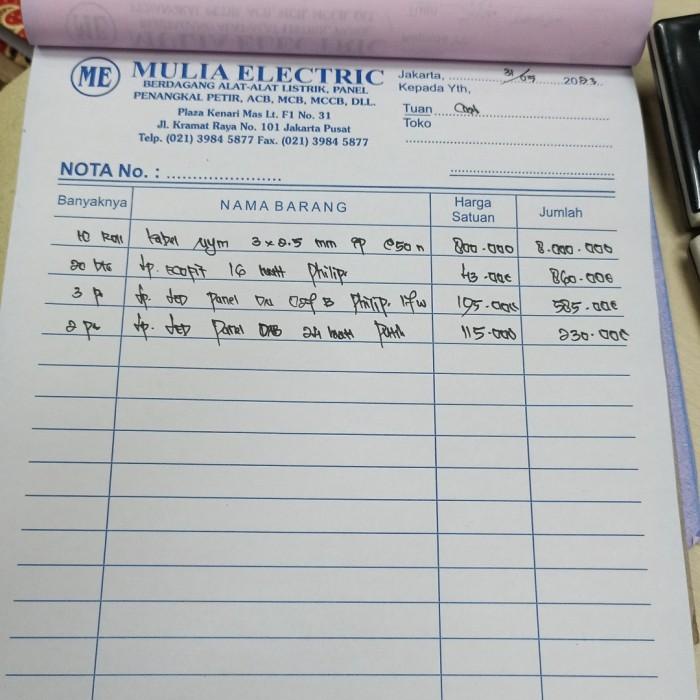 ME
MULIA ELECTRIC
BERDAGANG ALAT-ALAT LISTRIK, PANEL
PENANGKAL PETIR, ACB, MCB, MCCB, DLL.
Plaza Kenari Mas Lt. F1 No. 31
Jl. Kramat Raya No. 101 Jakarta Pusat
Telp. (021) 3984 5877 Fax. (021) 3984 5877
Jakarta, 31/05 2023
Kepada Yth,
Tuan Cash
Toko
NOTA No. :
Banyaknya NAMA BARANG Harga Satuan Jumlah
10 Roll kabel nym 3 x 2.5 mm @50 m 800.000 8.000.000
20 bts lp. ECOFIT 16 watt Philips 43.000 860.000
3 p lp. led panel Philip 17w 195.000 585.000
2 pc lp. led Panel 24 watt 115.000 230.000